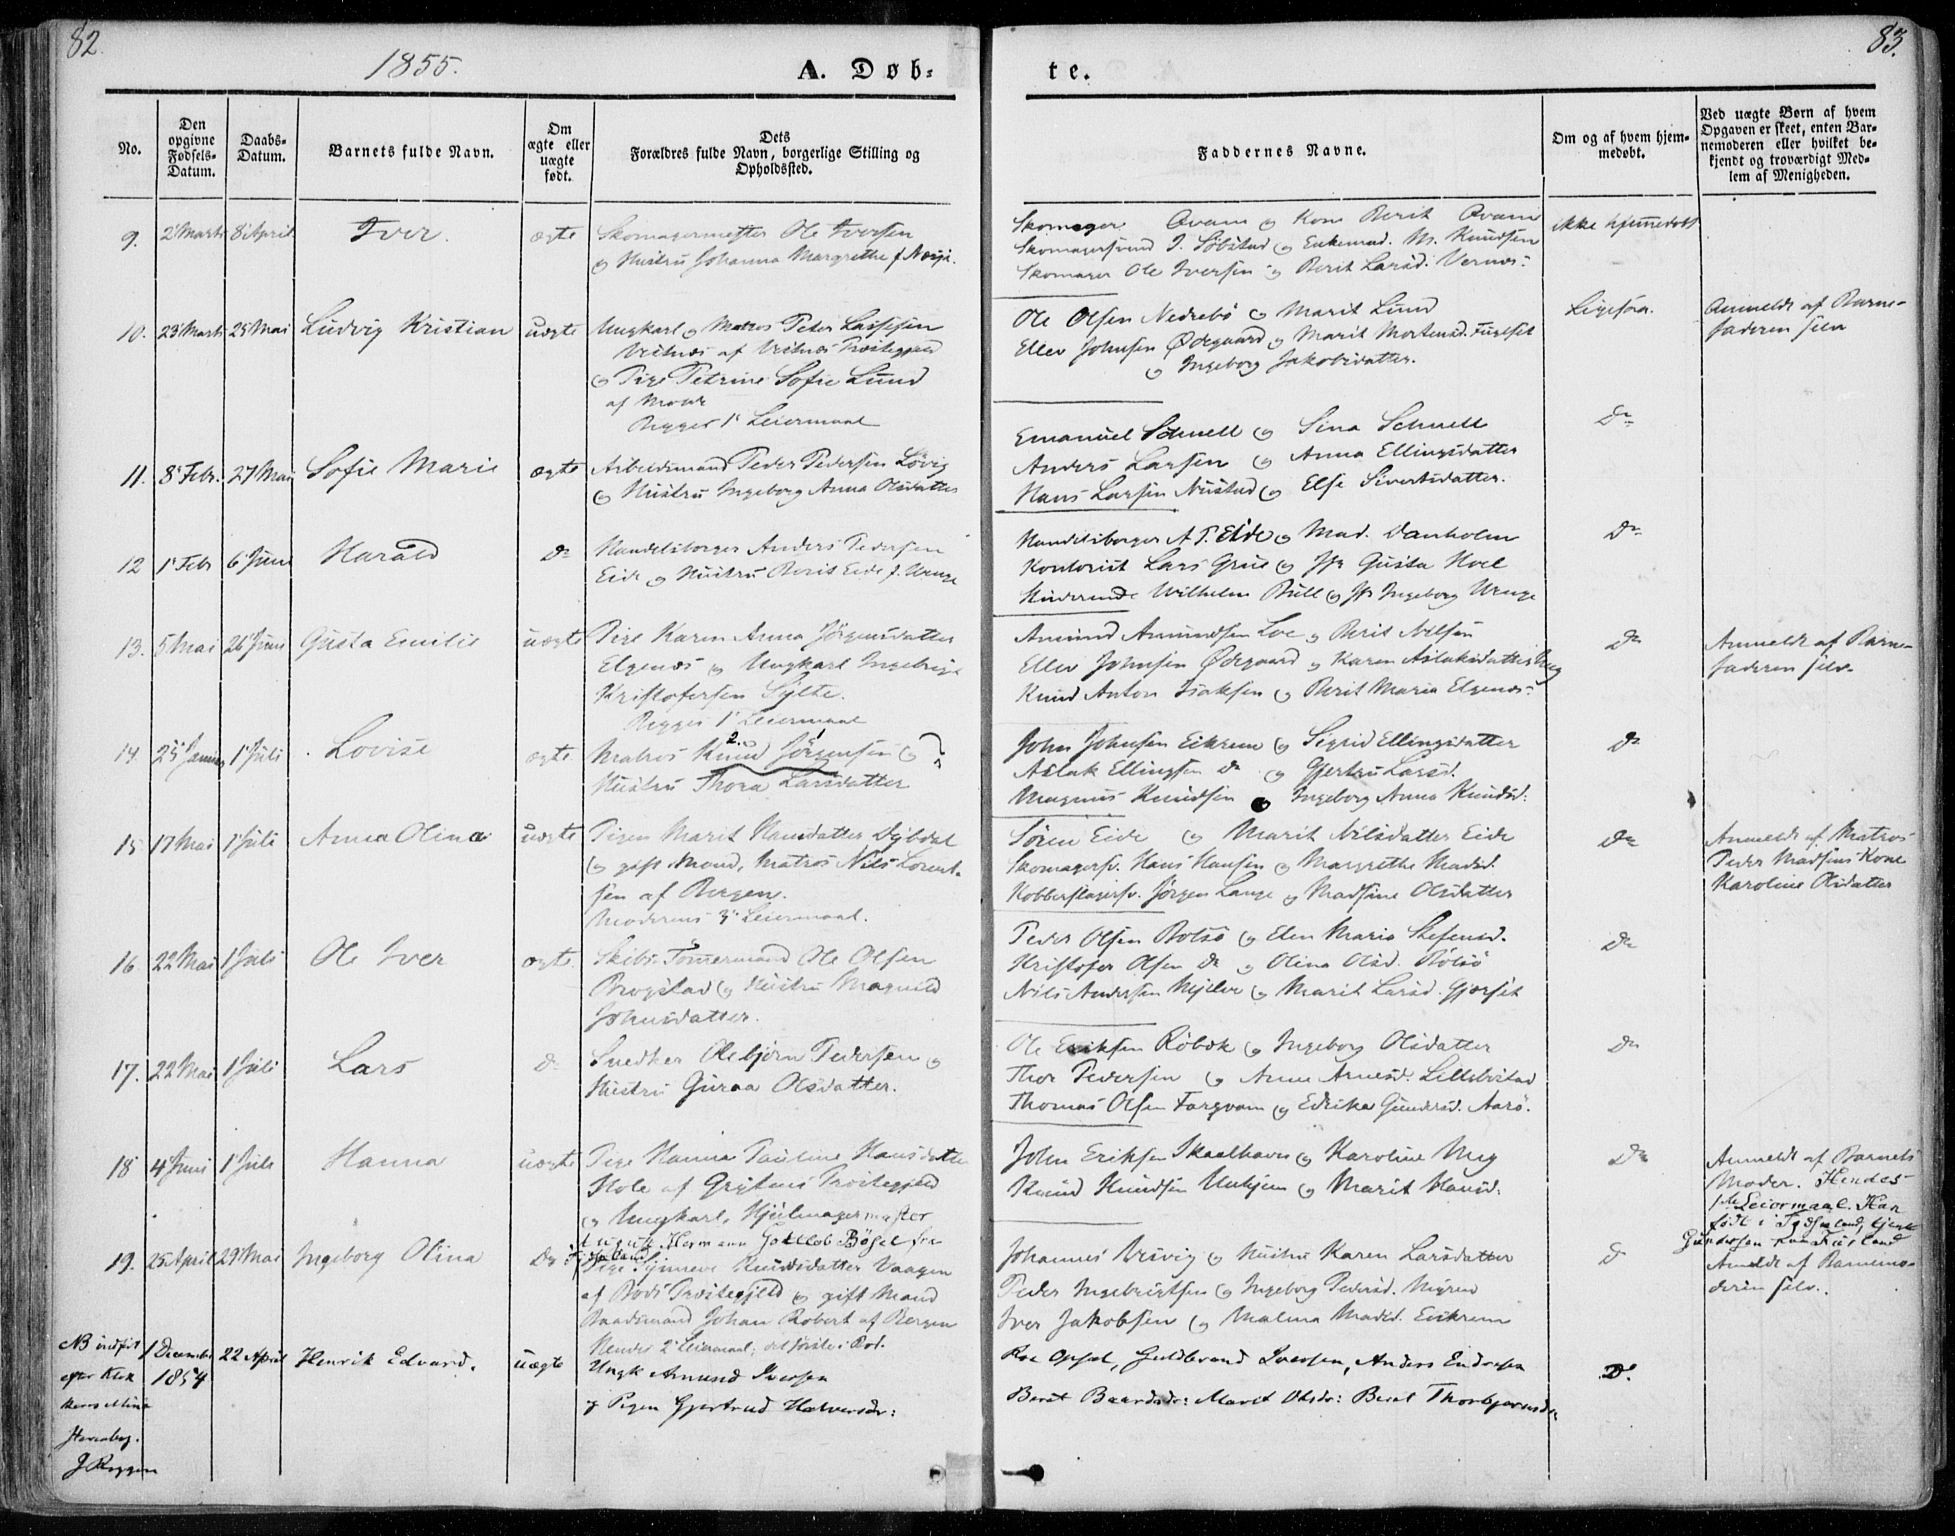 82.
1855.
A. Døb-
te.
83.
No.
Den opgivne Fødsels-Datum.
Daabs-Datum.
Barnets fulde Navn.
Om ægte eller uægte født.
Dets Forældres fulde Navn, borgerlige Stilling og Opholdssted.
Faddernes Navne.
Om og af hvem hjemmedøbt.
Ved uægte Børn af hvem Opgaven er skeet, enten Barnemoderen eller hvilket bekjendt og troværdigt Medlem af Menigheden.
9. 2 Marts 8 April Iver. ægte
Skomagermester Ole Iversen
og Hustru Johanna Margrethe f.
Skomager Qvam og Kone Berit Qvam
Skomagersvend I. Søbstad og Enkemad. M. Knudsen
Skomager Ole Iversen og Berit Larsd.
ikke hjemmedøbt
10. 23 Marts 25 Mai Ludvig Kristian uægte
Ungkarl og Matros Peter Lassesen
Vestnæs af Vestnæs Præstegjeld
og Pige Petrine Sofie Lund
af Molde
Begges 1ste Leiermaal
Ole Olsen Nedrebø og Marit Lund
Ellev Johnsen Ødegaard og Marit Mortensd. Fuglset
og Ingeborg Jakobsdatter.
Ligesaa.
Anmeldt af Barne-
faderen selv
11. 8 Febr. 27 Mai Sofie Marie ægte
Arbeidsmand Peder Pedersen Løvig
og Hustru Ingeborg Anna Olsdatter
Emanuel Schnell og Sina Schnell
Anders Larsen og Anna Ellingsdatter
Hans Larsen Nustad og Else Sivertsdatter.
Do
12 1 Febr 6 Juni Harald Do
Handelsborger Anders Pedersen
Eide og Hustru Berit Eide f. Unge
Handelsborger A P. Eide og Mad. Danholm
Kontorist Lars Grüe og Jfr Gusta Hoel
Studerende Wilhelm Bull og Jfr Ingeborg Unge
Do
13. 5 Mai 26 Juni Gusta Emilie uægte
Pige Karen Anna Jørgensdatter
Elgenæs og Ungkarl Ingebrigt
Kristofersen Sylte.
Begges 1ste Leiermaal
Amund Amundsen Loe og Berit Nilsen
Ellev Johnsen Ødegaard og Karen Aslaksdatter
Knud Anton Isaksen og Berit Maria Elgenæs
Do
Anmeldt af Barne-
faderen selv.
14. 25 1 Juli Lovise ægte
Matros Knud Jørgensen og
Hustru Thora Larsdatter
John Johnsen Eikrem og Sigrid Ellingsdatter
Aslak Ellingsen Do og Gjertru Larsd.
Magnus Knudsen og Ingeborg Anna Knudsd.
Do
15 17 Mai 1 Juli Anna Olina uægte
Pigen Marit Hansdatter Dybdal
og gift Mand, Matros Nils Lorent-
sen af Bergen.
Moderens 3die Leiermaal.
Søren Eide og Marit Nilsdatter Eide
Skomagersv. Hans Hansen og Margrethe Madsd.
Kobberslagersv. Jørgen Lange og Madsine Olsdatter
Do
Anmeldt af Matros
Peder Madsens Kone
Karoline Olsdatter
16. 22 Mai 1 Juli Ole Iver ægte
Skibs-Tømmermand Ole Olsen
Brogstad og Hustru Magnild
Johnsdatter.
Peder Olsen Bolsø og Elen Maria Stefensd.
Kristofer Olsen Do og Olina Olsd. Bolsø
Nils Andersen Mjelve og Marit Larsd. Gjørset
Do
17. 22 Mai 1 Juli Lars Do
Snedker Olebjørn Pedersen og
Hustru Guraa Olsdatter.
Ole Eriksen Røbæk og Ingeborg Olsdatter
Thor Pedersen og Anne Arnesd. Lillebostad
Thomas Olsen Fargvam og Edrika Gundersd. Aarø.
Do
18 4 Juni 1 Juli Hanna uægte
Pige Hanna Pauline Hansdatter
Hole af Grytens Præstegjeld
og Ungkarl, Hjulmagermester
August Hermann Gottlob Bögel fra
Tydskland.
John Eriksen Skaalhavn og Karoline Meg
Knud Knudsen Unhjem og Marit Hansd.
Do
Anmeldt af Barnets
Moder. Hendes
1ste Leiermaal. Han
født i Tydskland,
19. 25 April 29 Mai Ingeborg Olina Do
Pige Synneve Knudsdatter Vaagen
af Bods Præstegjeld og gift Mand
Baadsmand Johan Robert af Bergen
Hendes 2det Leiermaal; det første i Bod.
Johannes Aisvig og Hustru Karen Larsdatter
Peder Ingebrigtsen og Ingeborg Pedersd.
Iver Jakobsen og Malena Madsd. Eikrem
D
Anmeldt af Barnemo-
deren selv.
NB indført
efter Klok
kers Mini
1 December 1854 22 April Henrik Edvard. uægte
Ungk Amund Iversen
og Pigen Gjertrud Halvorsdr:
Roe Opsal, Guldbrand Iversen, Anders Endresen
Berit Baardsdr: Marit Olsdr: Berit Thorbjørnsdr
Do